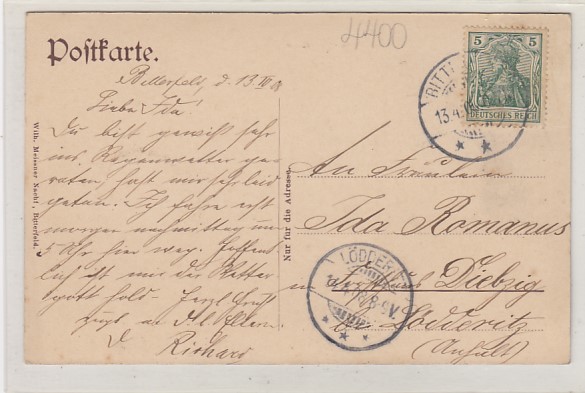 Postkarte.
4400
5 5
DEUTSCHES REICH
BITTE
13.4.
Bitterfeld, d. 13 IV
Liebe Ida!
Du bist gewiß sehr
ins Regenwetter ge-
raten, hast mir sehr leid
getan. Ich fahre erst
morgen nachmittag um
5 Uhr hier weg. Hoffent-
lich ist mir der Wetter
gott hold. Herzl. Gruß
a. d. l. Eltern.
D. Richard
Wilh. Meissner Nachf., Bitterfeld.
Nur für die Adresse.
An Fräulein
Ida Romanus
in Diebzig
bei Lödderitz
(Anhalt)
LÖDDER
8-9V.